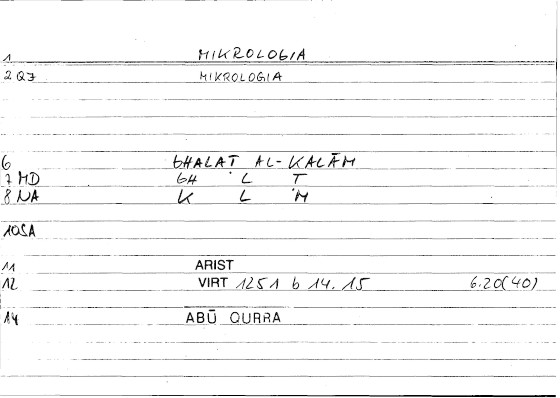 1 MIKROLOGIA
2 QJ MIKROLOGIA
6 GHALAT AL-KALĀM
7 MD GH ' L T
8 NA K L 'M
10SA
11 ARIST
12 VIRT 1251 b 14. 15 6.20(40)
14 ABŪ QURRA